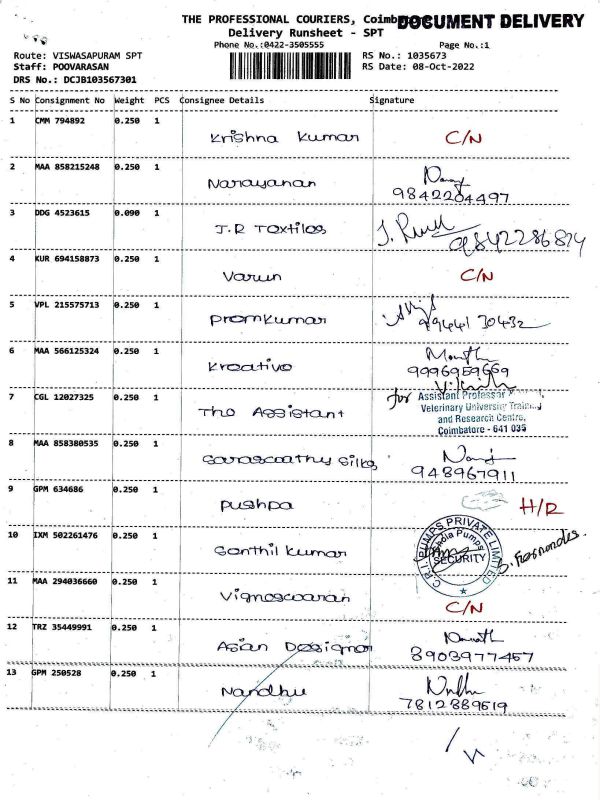 THE PROFESSIONAL COURIERS, Coimbatore
DOCUMENT DELIVERY
Delivery Runsheet - SPT
Phone No.:0422-3505555
Page No.:1
Route: VISWASAPURAM SPT
RS No.: 1035673
Staff: POOVARASAN
RS Date: 08-Oct-2022
DRS No.: DCJB103567301
S No Consignment No Weight PCS Consignee Details Signature
1 CMM 794892 0.250 1
Krishna Kumar C/N
2 MAA 858215248 0.250 1
Narayanan
9842204497
3 DDG 4523615 0.090 1
J.R Textiles
9842286874
4 KUR 694158873 0.250 1
Varun C/N
5 VPL 215575713 0.250 1
Premkumar 99441 30432
6 MAA 566125324 0.250 1
Kreative 9996959669
7 CGL 12027325 0.250 1
for Assistant Professor
The Assistant
Veterinary University Training
and Research Centre,
Coimbatore - 641 035
8 MAA 858380535 0.250 1
Saraswathy Silks 948967911
9 GPM 634686 0.250 1
Pushpa H/R
10 IXM 502261476 0.250 1
Senthil Kumar
C.R.I. PUMPS PRIVATE LIMITED
Pumps
SECURITY
S. Fernandes
11 MAA 294036660 0.250 1
Vigneswaran C/N
12 TRZ 35449991 0.250 1
Asian Designer 8903977457
13 GPM 250528 0.250 1
Nandhu 7812889619